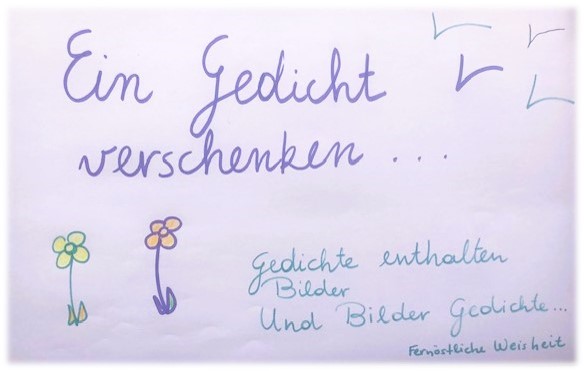 Ein Gedicht
verschenken ...
Gedichte enthalten
Bilder
Und Bilder Gedichte...
Fernöstliche Weisheit